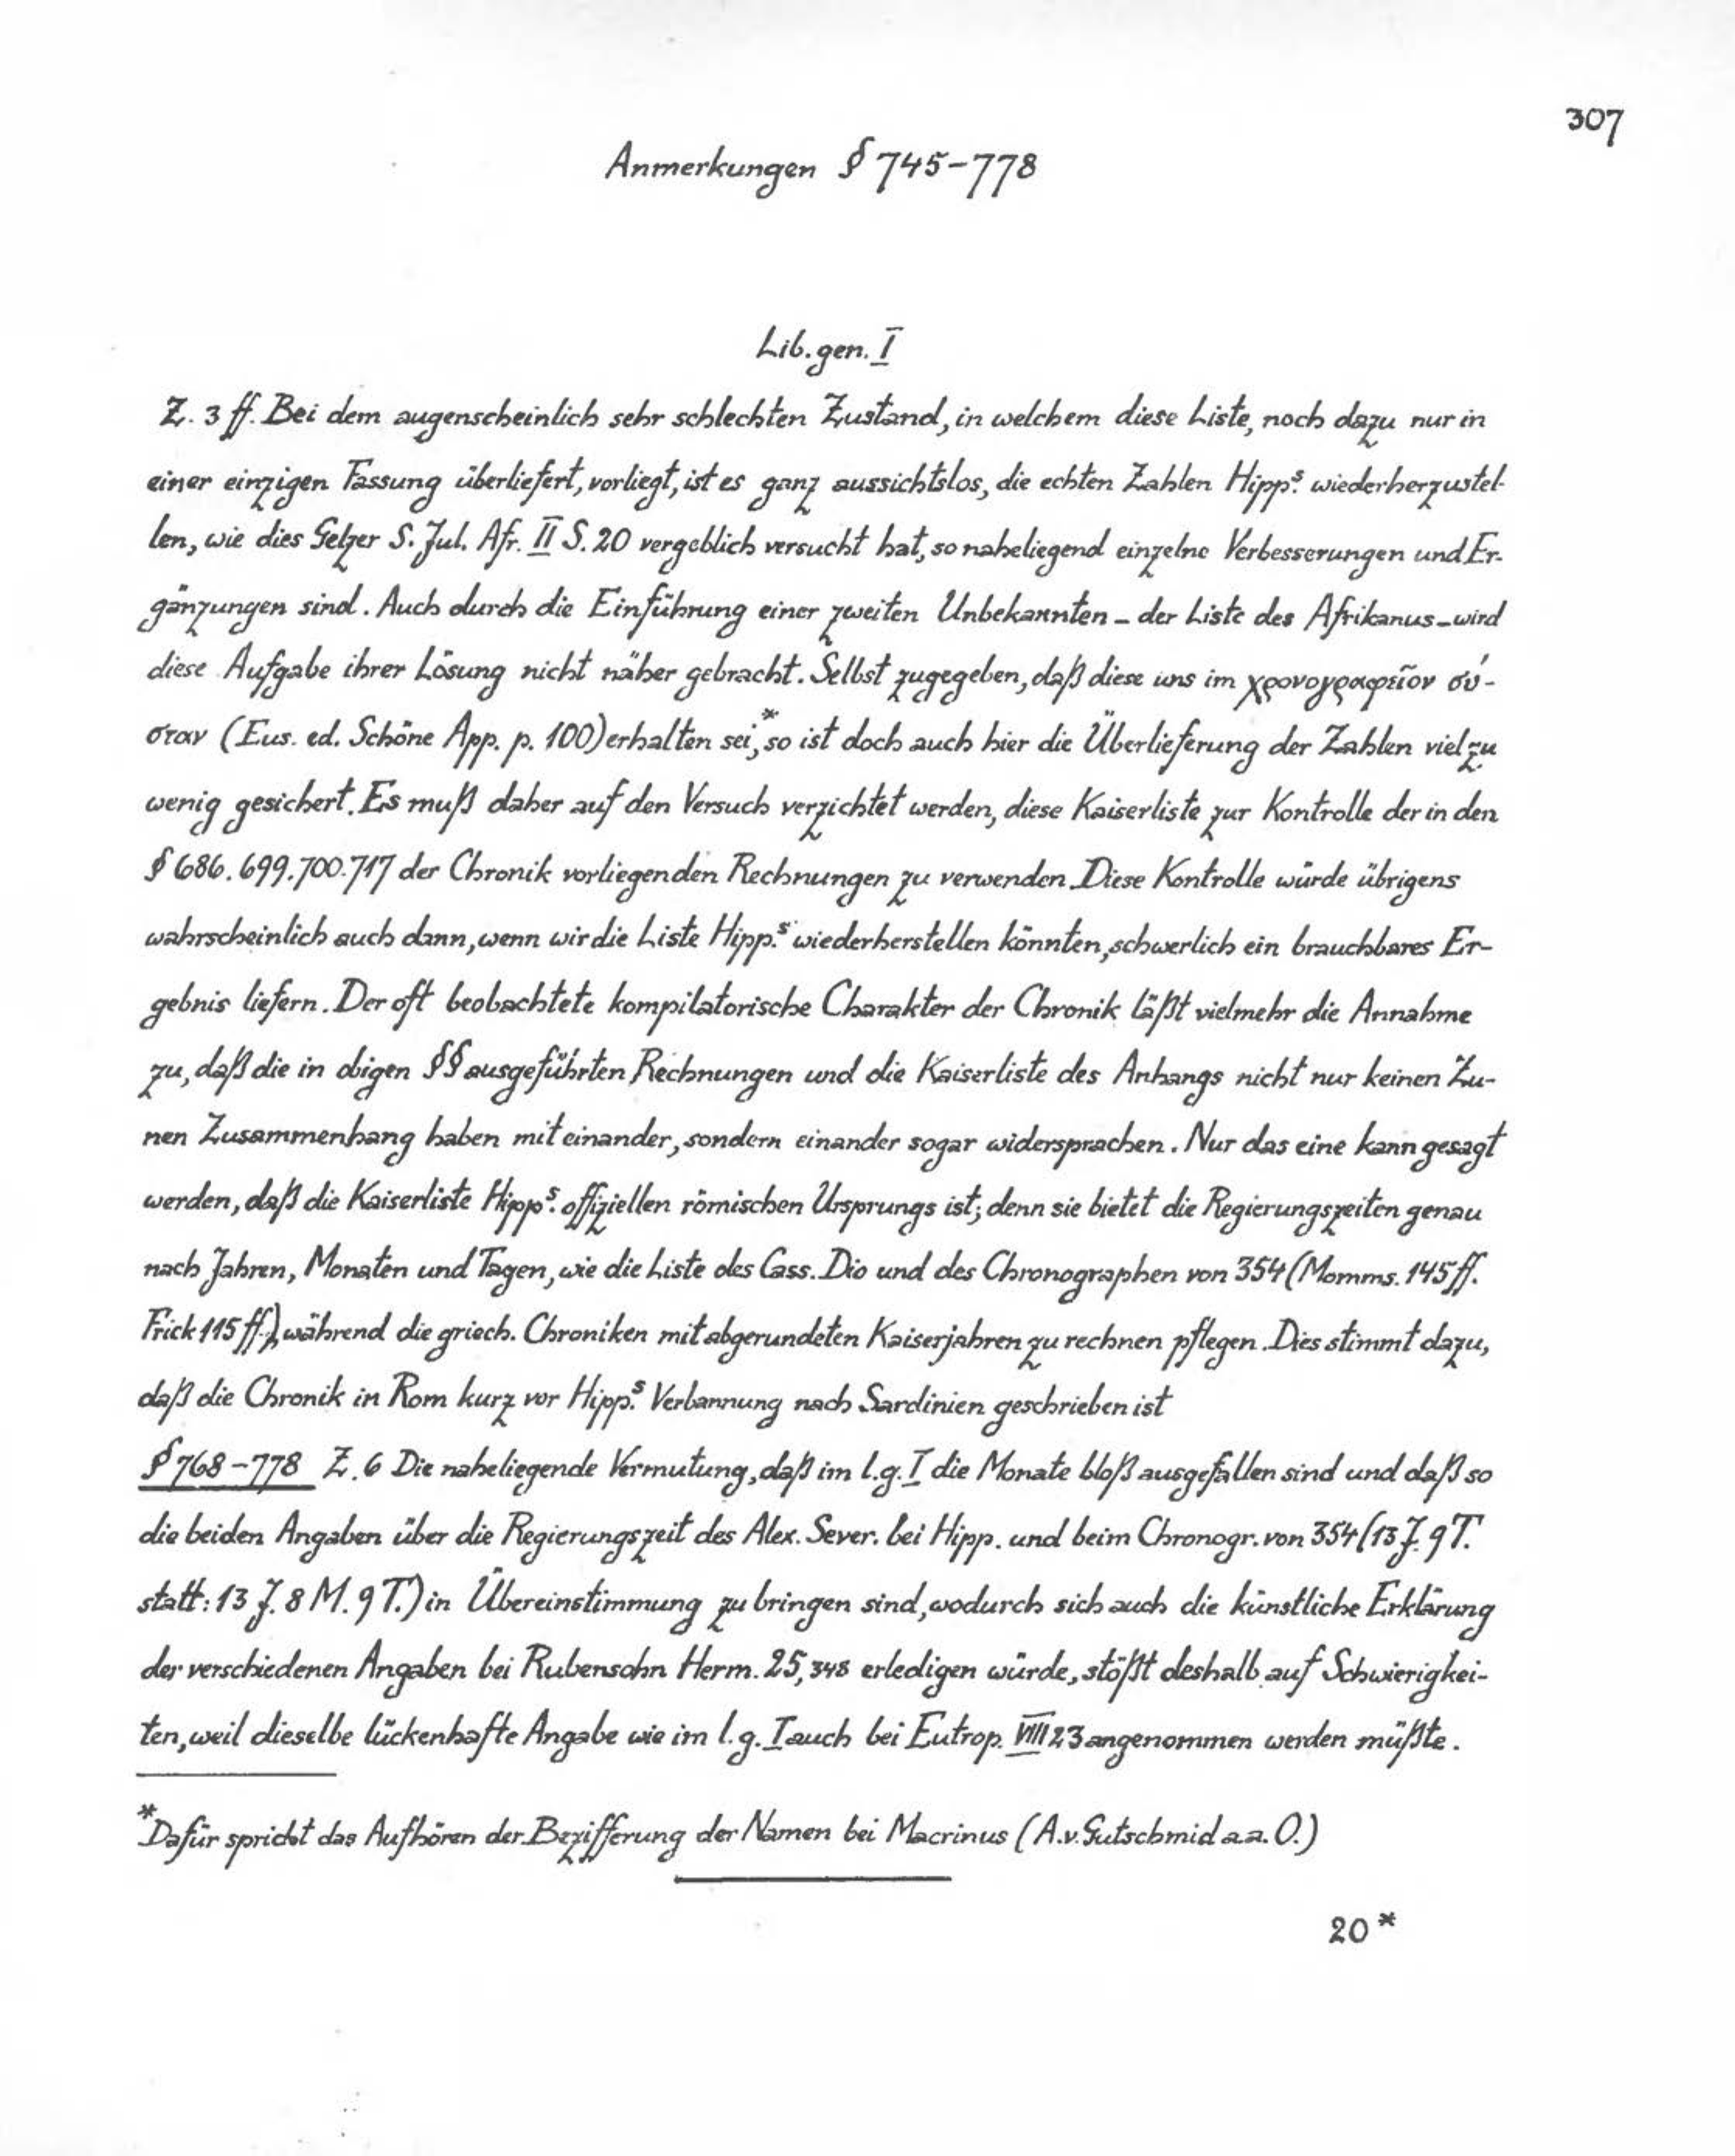 307
Anmerkungen § 745-778
Lib. gen. I
Z. 3 ff. Bei dem augenscheinlich sehr schlechten Zustand, in welchem diese Liste, noch dazu nur in
einer einzigen Fassung überliefert, vorliegt, ist es ganz aussichtslos, die echten Zahlen Hipp.s wiederherzustel-
len, wie dies Gelzer S. Jul. Afr. II S. 20 vergeblich versucht hat, so naheliegend einzelne Verbesserungen und Er-
gänzungen sind. Auch durch die Einführung einer zweiten Unbekannten – der Liste des Afrikanus – wird
diese Aufgabe ihrer Lösung nicht näher gebracht. Selbst zugegeben, daß diese uns im χρονογραφεῖον σύ-
σταν (Eus. ed. Schöne App. p. 100) erhalten sei,* so ist doch auch hier die Überlieferung der Zahlen viel zu
wenig gesichert. Es muß daher auf den Versuch verzichtet werden, diese Kaiserliste zur Kontrolle der in den
§ 686. 699. 700. 717 der Chronik vorliegenden Rechnungen zu verwenden. Diese Kontrolle würde übrigens
wahrscheinlich auch dann, wenn wir die Liste Hipp.s wiederherstellen könnten, schwerlich ein brauchbares Er-
gebnis liefern. Der oft beobachtete kompilatorische Charakter der Chronik läßt vielmehr die Annahme
zu, daß die in obigen §§ ausgeführten Rechnungen und die Kaiserliste des Anhangs nicht nur keinen Zu-
nen Zusammenhang haben mit einander, sondern einander sogar widersprachen. Nur das eine kann gesagt
werden, daß die Kaiserliste Hipp.s offiziellen römischen Ursprungs ist; denn sie bietet die Regierungszeiten genau
nach Jahren, Monaten und Tagen, wie die Liste des Cass. Dio und des Chronographen von 354 (Momms. 145 ff.
Frick 115 ff.), während die griech. Chroniken mit abgerundeten Kaiserjahren zu rechnen pflegen. Dies stimmt dazu,
daß die Chronik in Rom kurz vor Hipp.s Verbannung nach Sardinien geschrieben ist
§ 768-778 Z. 6 Die naheliegende Vermutung, daß im l. g. I die Monate bloß ausgefallen sind und daß so
die beiden Angaben über die Regierungszeit des Alex. Sever. bei Hipp. und beim Chronogr. von 354 (13 J. 9 T.
statt: 13 J. 8 M. 9 T.) in Übereinstimmung zu bringen sind, wodurch sich auch die künstliche Erklärung
der verschiedenen Angaben bei Rubensohn Herm. 25, 348 erledigen würde, stößt deshalb auf Schwierigkei-
ten, weil dieselbe lückenhafte Angabe wie im l. g. I auch bei Eutrop. VIII 23 angenommen werden müßte.
* Dafür spricht das Aufhören der Bezifferung der Namen bei Macrinus (A. v. Gutschmid a. a. O.)
20*